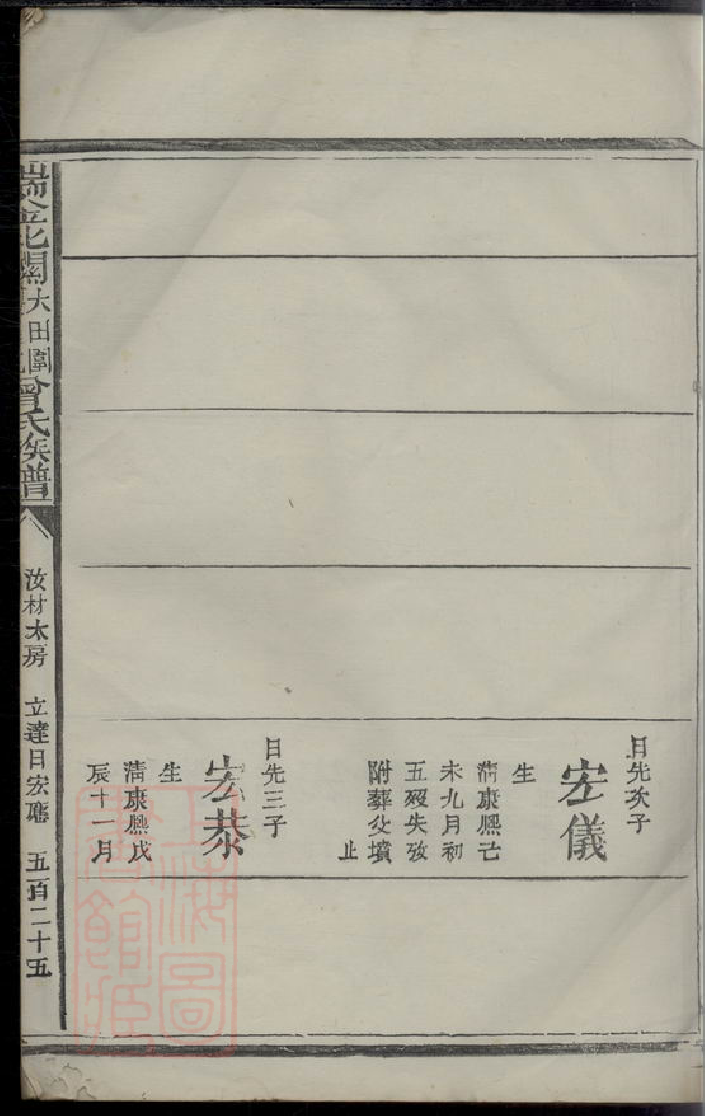 日先次子
宏儀
生
清康熈己
未九月初
五殁失攷
附葬父墳
止
日先三子
宏恭
生
清康熈戊
辰十一月
瑞金北關大田圍曾氏族譜
汝材太房 立達日宏 五百二十五
上海圖書館藏